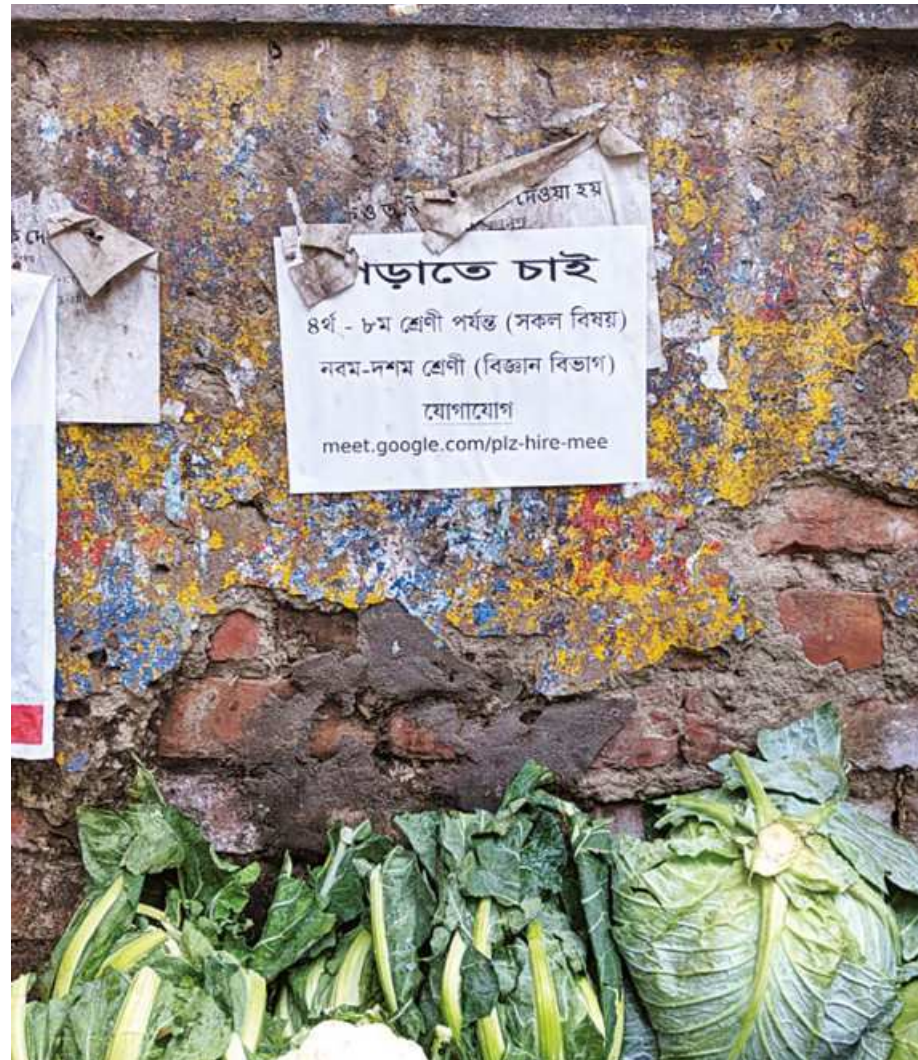 দেওয়া হয়
ড়াতে চাই
৪র্থ - ৮ম শ্রেণী পর্যন্ত (সকল বিষয়)
নবম-দশম শ্রেণী (বিজ্ঞান বিভাগ)
যোগাযোগ
meet.google.com/plz-hire-mee